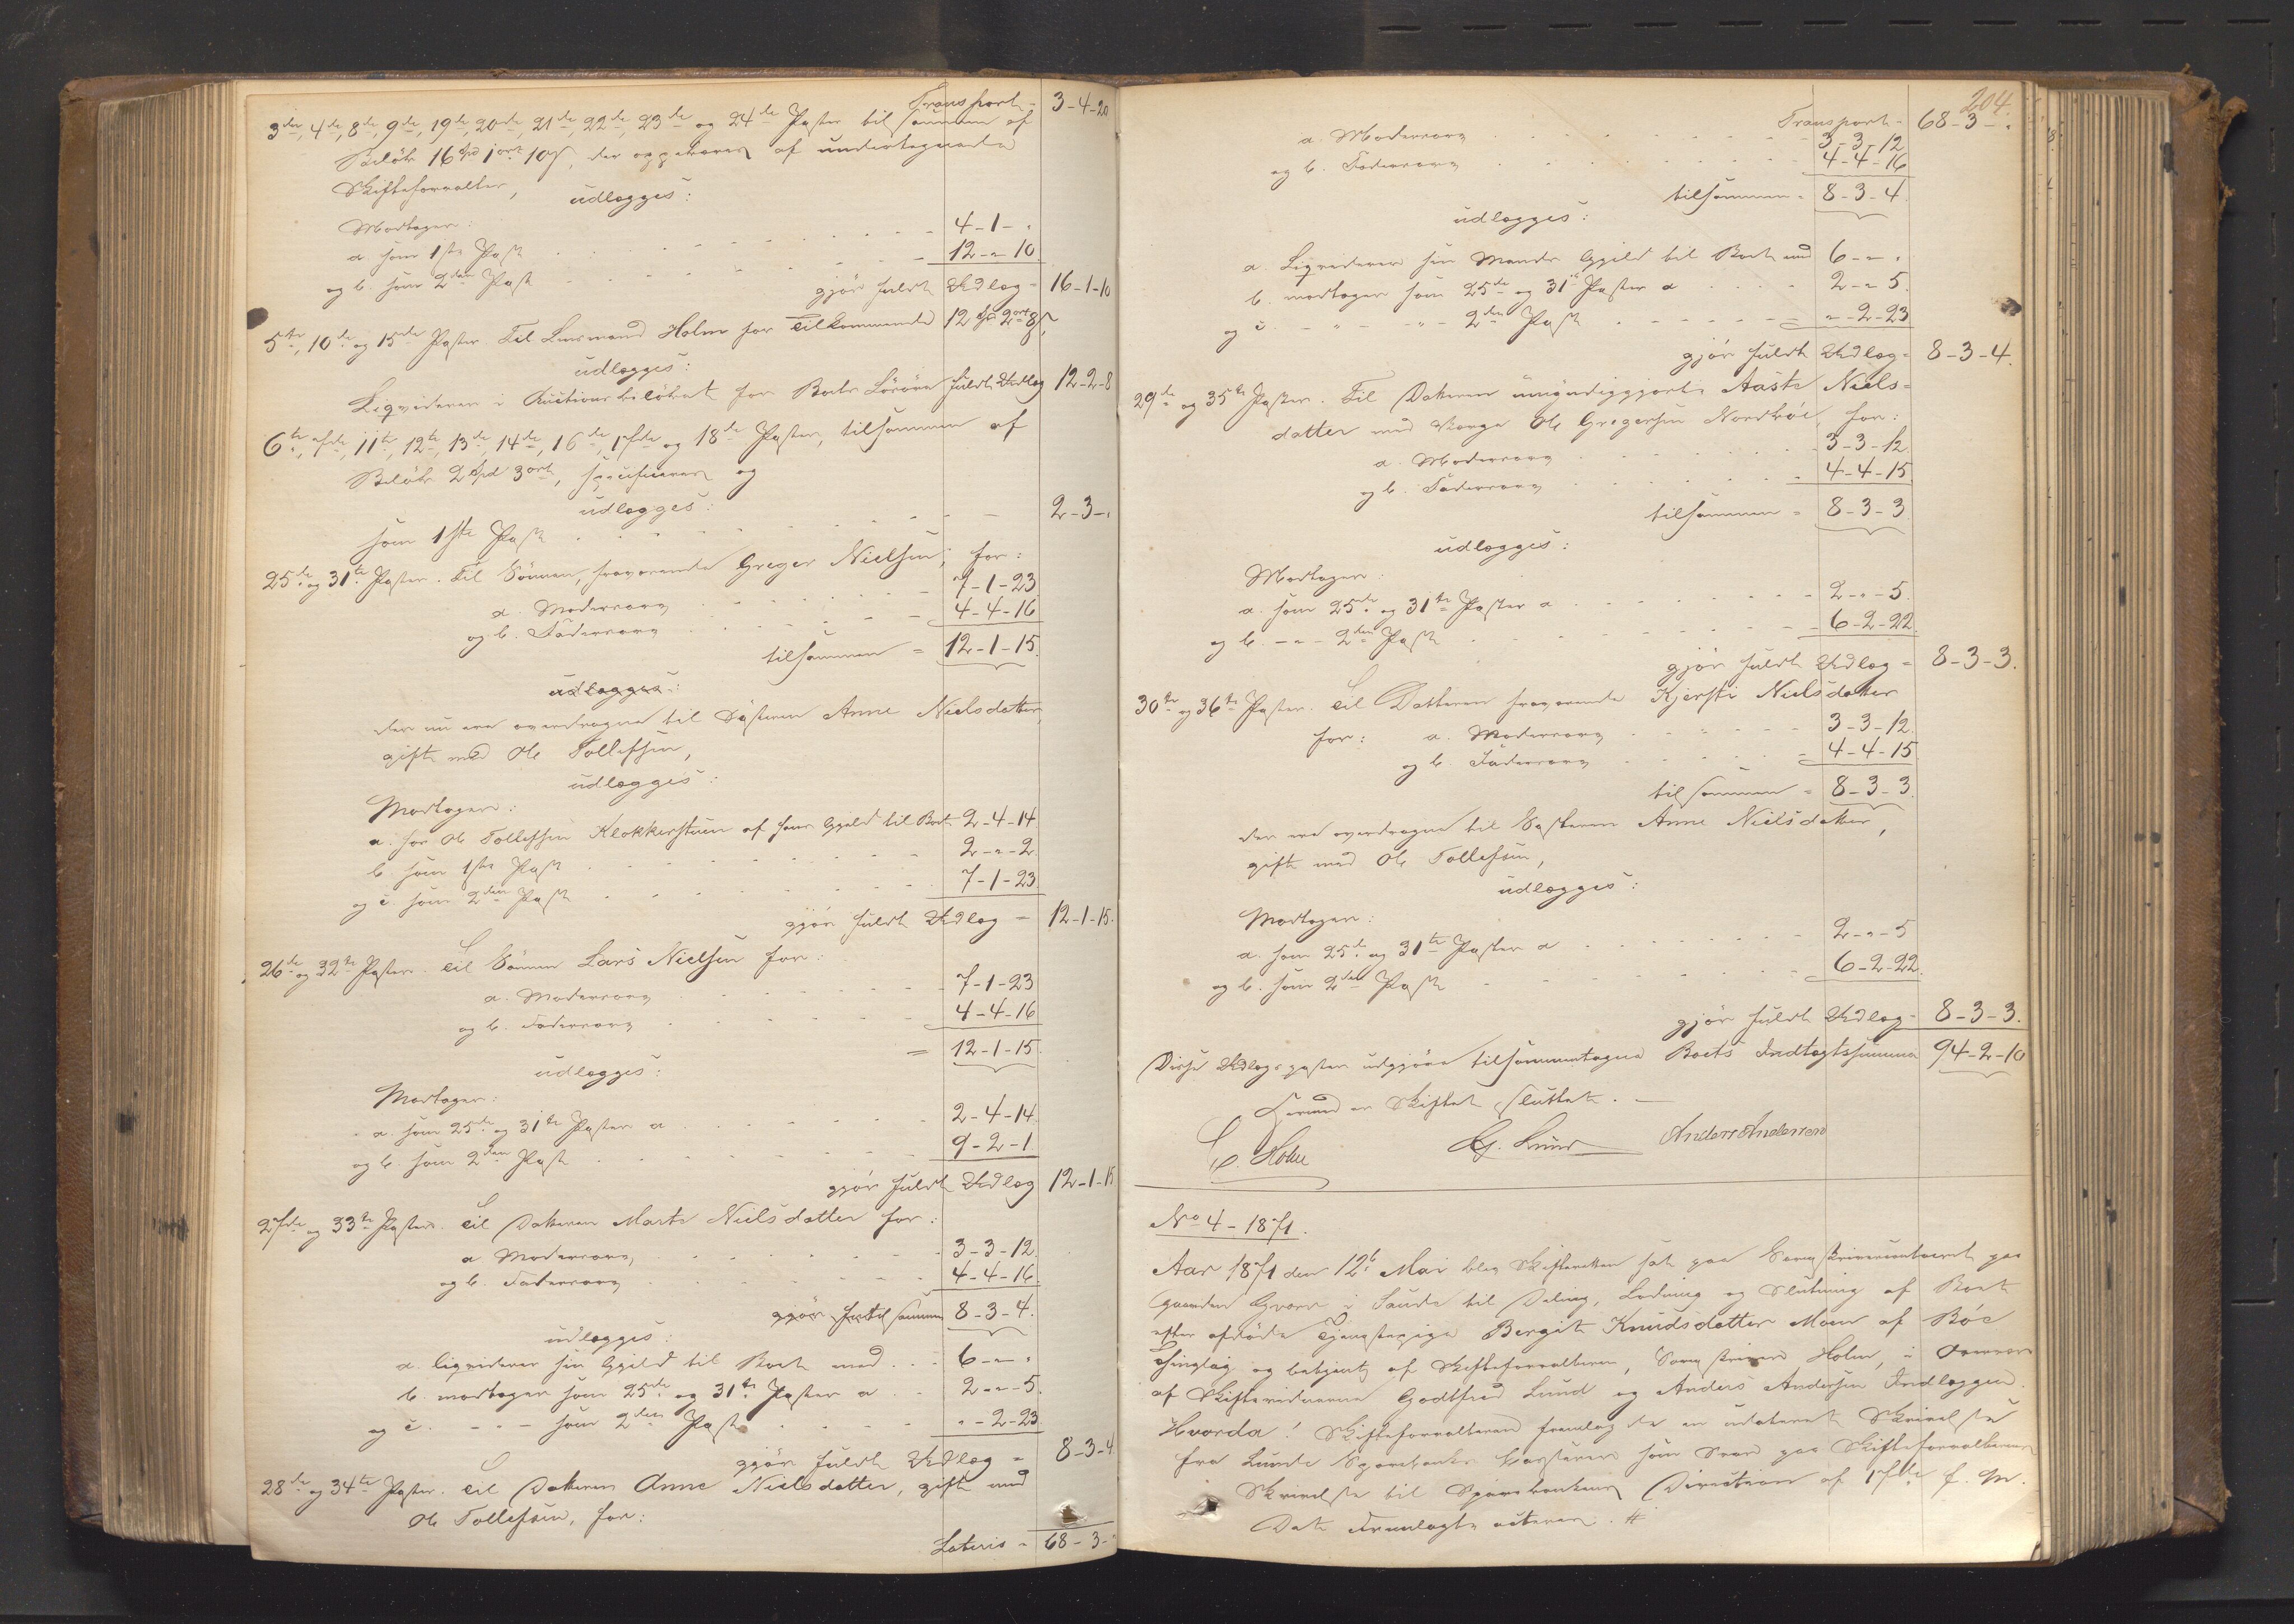 Transport - 3-4-20
3die, 4de, 8de, 9de, 19de, 20de, 21de, 22de, 23de og 24de Poster til sammen af
Beløb 16 Spd 1 ort 10 s, der oppebæres af undertegnede
Skifteforvalter,
udlægges:
Modtager:
a. som 1ste Post 4-1-"
og b. som 2den Post 12-"-10
gjør fuldt Udlæg - 16-1-10
5te, 10de og 15de Poster. Til Lensmand Holm for Tilkommende 12 Spd 2 ort 8 s,
udlægges:
Liqviderer i Auctionsbeløbet for Boets Løsøre fuldt Udlæg 12-2-8
6te, 7de, 11te, 12te, 13de, 14de, 16de, 17de og 18de Poster, tilsammen af
Beløb 2 Spd 3 ort, specificeres og
udlægges:
som 1ste Post 2-3-"
25de og 31te Poster. Til Sønnen, fraværende Greger Nielsen, for:
a. Mødrearv 7-1-23
og b. Fædrearv 4-4-16
tilsammen = 12-1-15.
udlægges:
der nu ere overdragne til Søsteren Anne Nielsdatter,
gift med Ole Tollefsen,
udlægges:
Modtager:
a. hos Ole Tollefsen Klokkerstuen af hans Gjæld til Boet 2-4-14
b. som 1ste Post 2-"-2
og c. som 2den Post 7-1-23
gjør fuldt Udlæg - 12-1-15.
26de og 32te Poster. Til Sønnen Lars Nielsen for:
a. Mødrearv 7-1-23
og b. Fædrearv 4-4-16
= 12-1-15.
udlægges:
Modtager:
a. som 25de og 31te Poster a 2-4-14
og b. som 2den Post 9-2-1
gjør fuldt Udlæg 12-1-15
27de og 33te Poster. Til Datteren Marte Nielsdatter for:
a. Mødrearv 3-3-12.
og b. Fædrearv 4-4-16.
gjør tilsammen 8-3-4.
udlægges:
a. liqviderer sin Gjæld til Boet med 6-"-"
b. modtager som 25de og 31te Poster a 2-"-5.
og c. - " - som 2den Post "-2-23.
gjør fuldt Udlæg = 8-3-4
28de og 34te Poster. Til Datteren Anne Nielsdatter, gift med
Ole Tollefsen, for:
Lateris = 68-3-"
204.
Transport - 68-3-"
a. Mødrearv 3-3-12
og b. Fædrearv 4-4-16
tilsammen = 8-3-4.
udlægges:
a. Liqviderer sin Mands Gjæld til Boet med 6-"-"
b. modtager som 25de og 31te Poster a 2-"-5.
og c. - " - " - 2den Post "-2-23
gjør fuldt Udlæg = 8-3-4.
29de og 35te Poster. Til Datteren umyndiggjorte Aaste Niels-
datter med Værge Ole Gregersen Nordbøe, for:
a. Mødrearv 3-3-12.
og b. Fædrearv 4-4-15.
tilsammen = 8-3-3
udlægges:
Modtager:
a. som 25de og 31te Poster a 2-"-5.
og b. - " - 2den Post 6-2-22.
gjør fuldt Udlæg = 8-3-3.
30te og 36te Poster. Til Datteren fraværende Kjersti Nielsdatter
for: a. Mødrearv 3-3-12.
og b. Fædrearv 4-4-15
tilsammen = 8-3-3.
der ere overdragne til Søsteren Anne Nielsdatter,
gift med Ole Tollefsen,
udlægges:
Modtager:
a. som 25de og 31te Poster a 2-"-5
og b. som 2den Post 6-2-22.
gjør fuldt Udlæg - 8-3-3.
Disse Udlægsposter udgjøre tilsammentagne Boets Indtægtssumma 94-2-10
Hermed er Skiftet sluttet. -
C. Holm G. Lund Anders Andersen
No 4 - 1871.
Aar 1871 den 12te Mai blev Skifteretten sat paa Sorenskriverkontoret paa
Gaarden Gvarv i Saude til Deling, Lodning og Slutning af Boet
efter afdøde Tjenestepige Bergit Knudsdatter Moen af Bøe
Thinglag og betjent af Skifteforvalteren, Sorenskriver Holm, i Overvær
af Skiftevidnerne Godtfred Lund og Anders Andersen Indlæggen.
Hvorda! Skifteforvalteren fremlagde en udateret Skrivelse
fra Lunde Sparebanks Kasserer som Svar paa Skifteforvalterens
Skrivelse til Sparebankens Direction af 17de f. M.
Det Fremlagte acteres. #